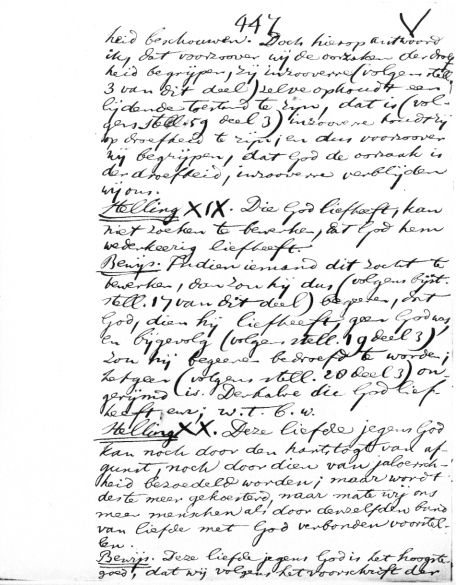 447 V
heid beschouwen. Doch hierop antwoord
ik, dat voorzoover wij de oorzaken der droef
heid begrijpen, zij inzooverre (volgens stell.
3 van dit deel) zelve ophoudt een
lijdende toestand te zijn, dat is (vol-
gens stell. 59 deel 3) inzooverre houdt zij
op droefheid te zijn; en dus voorzoover
wij begrijpen, dat God de oorzaak is
der droefheid, inzooverre verblijden
wij ons.
Stelling XIX. Die God liefheeft, kan
niet zoeken te bewerken, dat God hem
wederkeerig liefheeft.
Bewijs. Indien iemand dit zocht te
bewerken, dan zou hij dus (volgens bijst.
stell. 17 van dit deel) begeren, dat
God, dien hij liefheeft, geen God was,
en bijgevolg (volgens stell. 19 deel 3),
zou hij begeeren bedroefd te worden;
hetgeen (volgens stell. 28 deel 3) on-
gerijmd is. Derhalve die God lief-
heeft enz; w. t. b. w.
Stelling XX. Deze liefde jegens God
kan noch door den hartstogt van af-
gunst, noch door dien van jaloersch-
heid bezoedeld worden; maar wordt
deste meer gekoesterd, naar mate wij ons
meer menschen als door denzelfden band
van liefde met God verbonden voorstel-
len.
Bewijs. Deze liefde jegens God is het hoogste
goed, dat wij volgens het voorschrift der